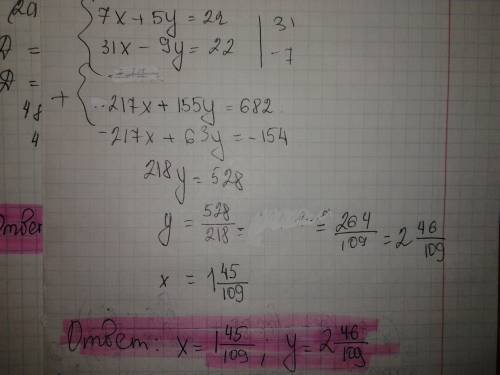 2а
7x + 5y = 22 | 31
31x - 9y = 22 | -7
D =
D =
48
4
+ 217x + 155y = 682
-217x + 63y = -154
218y = 528
y = 528/218 = = 264/109 = 2 46/109
x = 1 45/109
Ответ
Ответ: x = 1 45/109; y = 2 46/109